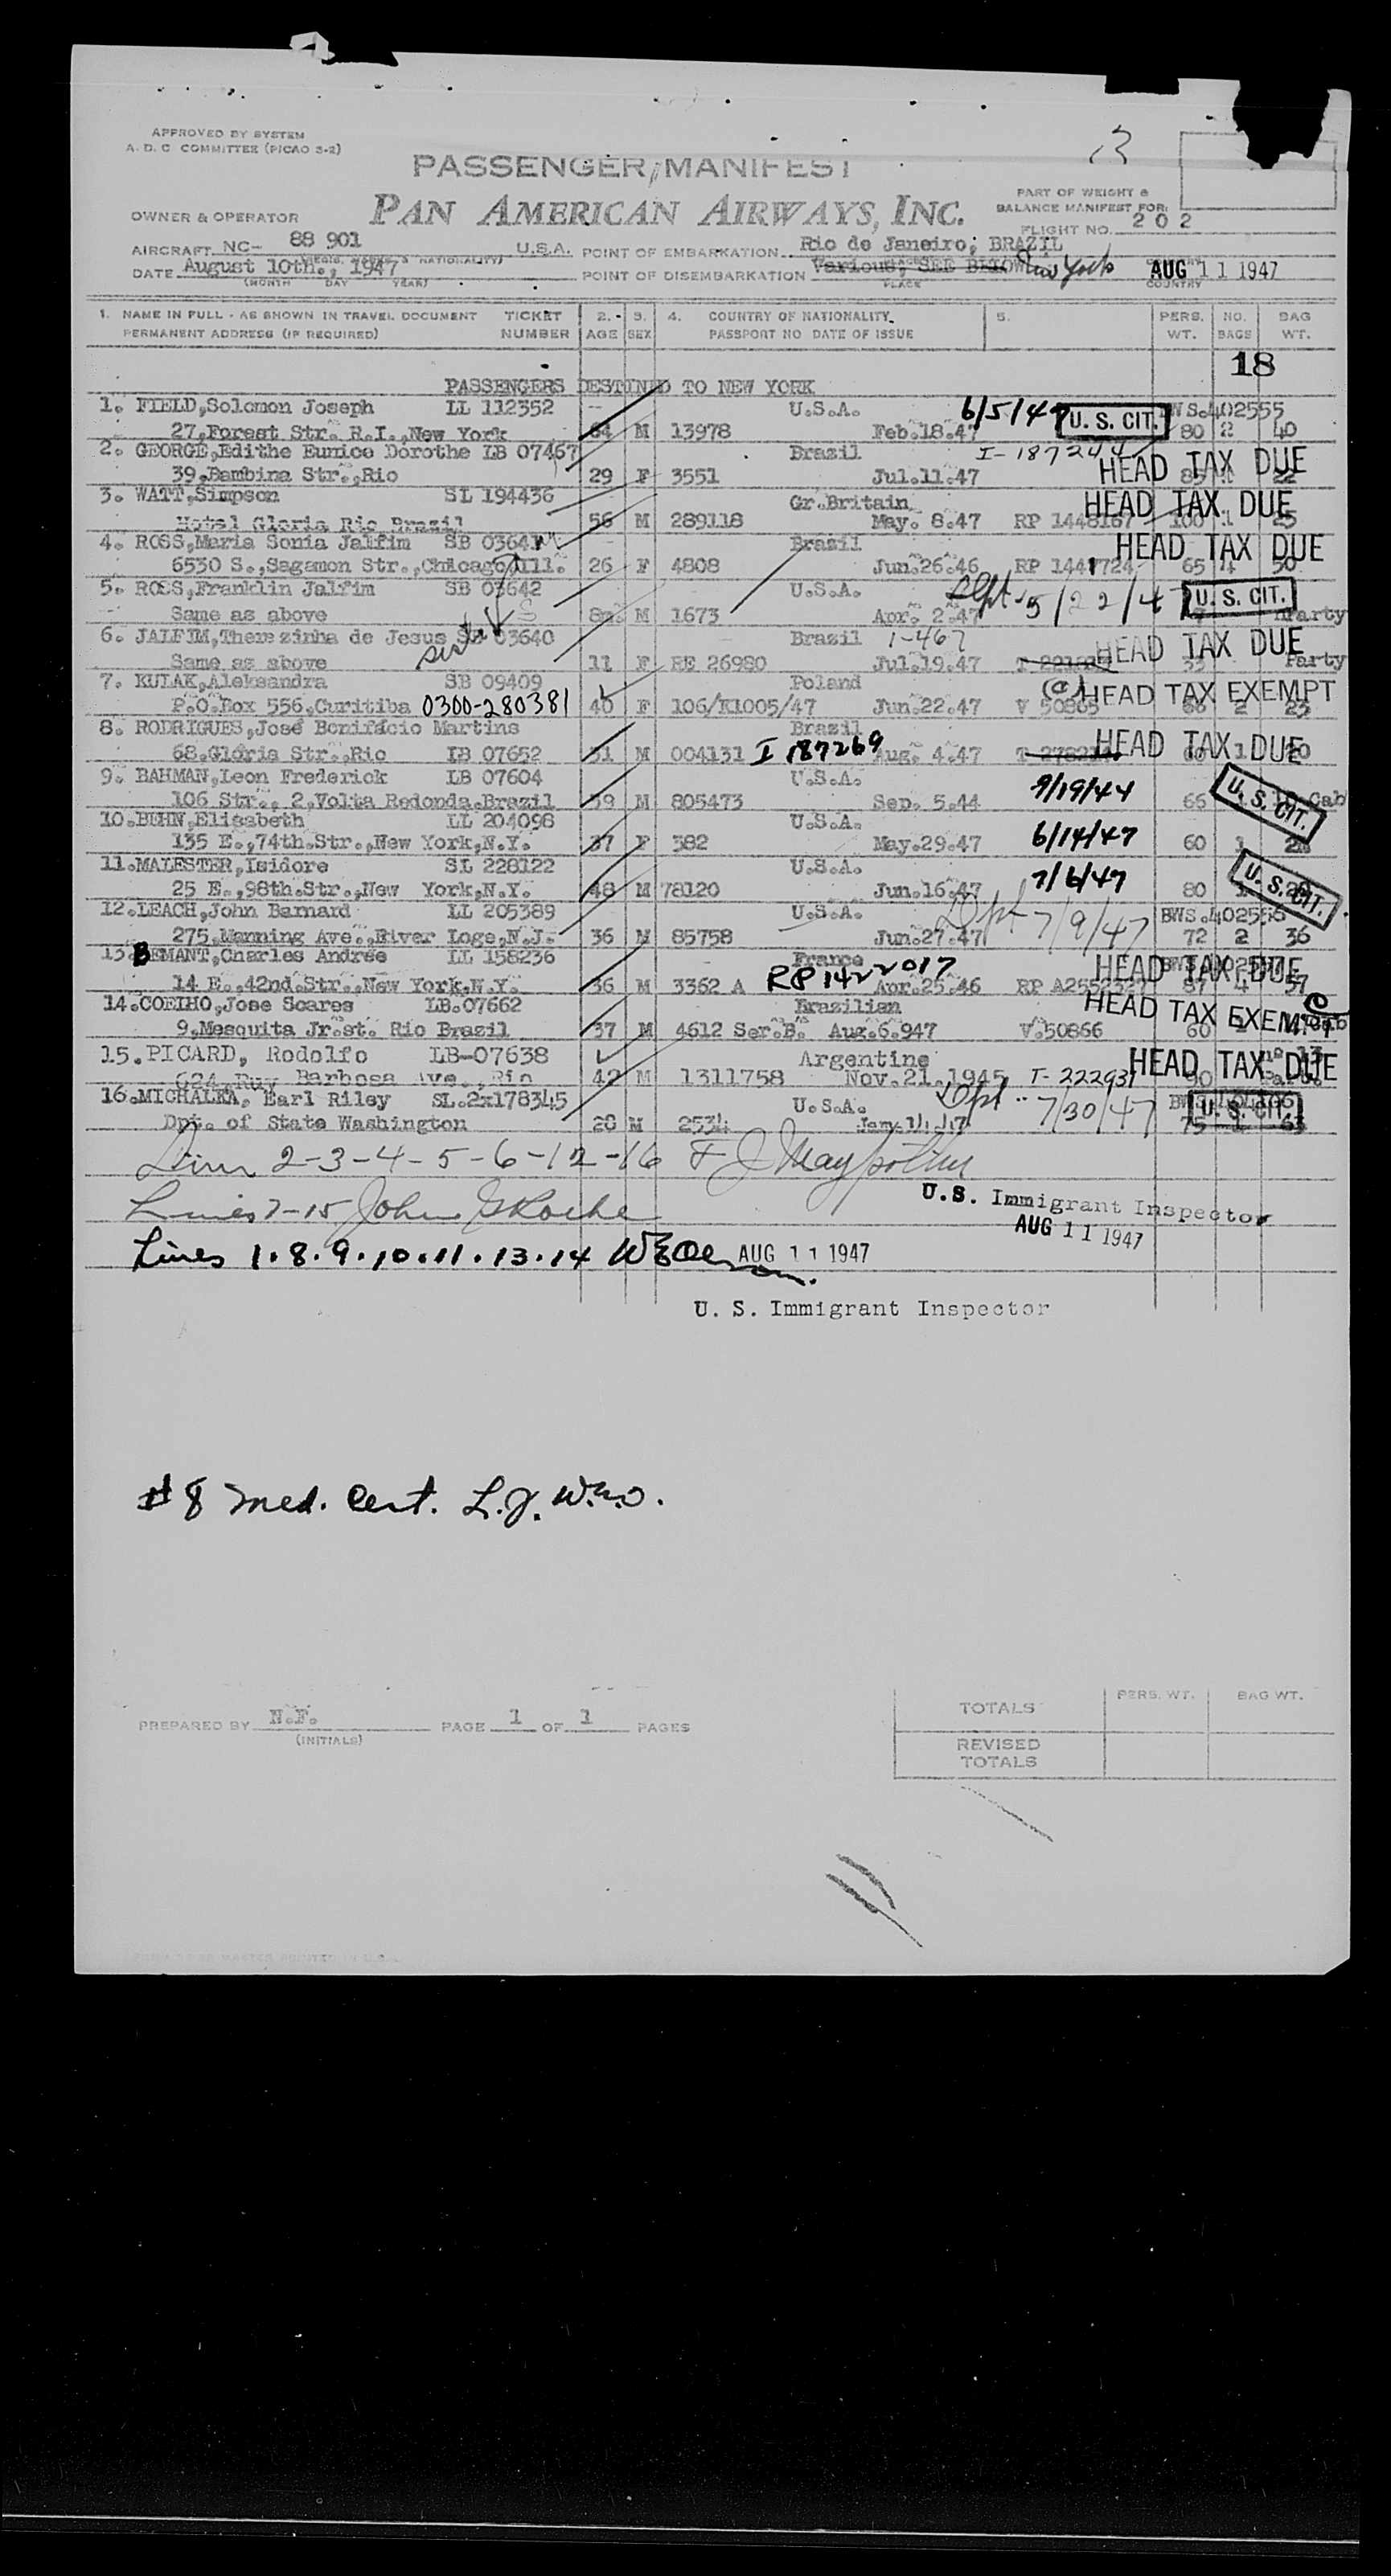 APPROVED BY SYSTEM
A. D. C COMMITTEE (PICAO 3-2)
13
PASSENGER MANIFEST
PAN AMERICAN AIRWAYS, INC.
PART OF WEIGHT &
BALANCE MANIFEST FOR:
FLIGHT NO. 2 0 2
OWNER & OPERATOR
AIRCRAFT NC- 88 901 U.S.A. POINT OF EMBARKATION Rio de Janeiro; BRAZIL
DATE August 10th., 1947 POINT OF DISEMBARKATION Various, SEE BELOW New York AUG 11 1947
(MONTH DAY YEAR) PLACE COUNTRY
1. NAME IN FULL - AS SHOWN IN TRAVEL DOCUMENT TICKET 2. 3. 4. COUNTRY OF NATIONALITY 5. PERS. NO. BAG
PERMANENT ADDRESS (IF REQUIRED) NUMBER AGE SEX PASSPORT NO DATE OF ISSUE WT. BAGS WT.
18
PASSENGERS DESTINED TO NEW YORK
1. FIELD,Solomon Joseph LL 112352 U.S.A. 6/5/47 U. S. CIT. BWS.402555
27,Forest Str. R.I.,New York 64 M 13978 Feb.18.47 80 2 40
2. GEORGE,Edithe Eunice Dorothe LB 07467 Brazil I-187244 HEAD TAX DUE
39,Bambina Str.,Rio 29 F 3551 Jul.11.47 22
3. WATT,Simpson SL 194436 Gr.Britain HEAD TAX DUE
Hotel Gloria Rio Brazil 56 M 289118 May. 8.47 RP 1448167 100 1 25
4. ROSS,Maria Sonia Jalfim SB 03641 Brazil HEAD TAX DUE
6530 S.,Sagamon Str.,Chicago,Ill. 26 F 4808 Jun.26.46 RP 1441724 65 4 50
5. ROSS,Franklin Jalfim SB 03642 U.S.A. Dept 5/22/47 U. S. CIT.
Same as above 8m. M 1673 Apr. 2.47 Party
6. JALFIM,Therezinha de Jesus SB 03640 sister Brazil 1-467 HEAD TAX DUE
Same as above 11 F RE 26980 Jul.19.47 Party
7. KULAK,Aleksandra SB 09409 Poland (c) HEAD TAX EXEMPT
P.O.Box 556.Curitiba 0300-280381 40 F 106/K1005/47 Jun.22.47 V 50865 66 2 23
8. RODRIGUES,José Bonifácio Martins Brazil HEAD TAX DUE
68.Glória Str.,Rio LB 07652 31 M 004131 I 187269 Aug. 4.47 1 20
9. BAHMAN,Leon Frederick LB 07604 U.S.A. 9/19/44 U. S. CIT.
106 Str., 2,Volta Redonda.Brazil 39 M 805473 Sep. 5.44 66 Cab
10.BUHN,Elisabeth LL 204098 U.S.A. 6/14/47
135 E.,74th.Str.,New York,N.Y. 37 F 382 May.29.47 60 1
11.MALESTER,Isidore SL 228122 U.S.A. 7/6/47 U. S. CIT.
25 E.,98th.Str.,New York,N.Y. 48 M 78120 Jun.16.47 80
12.LEACH,John Barnard LL 205389 U.S.A. Dpt 7/9/47 BWS.402556
275,Manning Ave.,River Loge,N.J. 36 M 85758 Jun.27.47 72 2 36
13.BEMANT,Charles Andrée LL 158236 France HEAD TAX DUE
14 E.,42nd.Str.,New York.N.Y. 36 M 3362 A RP 1422017 Apr.25.46 87 4 57
14.COELHO,Jose Soares LB.07662 Brazilian HEAD TAX EXEMPT
9.Mesquita Jr.st. Rio Brazil 37 M 4612 Ser.B. Aug.6.947 V.50866 60
15.PICARD, Rodolfo LB-07638 Argentine HEAD TAX DUE
624 Ruy Barbosa Ave.,Rio 42 M 1311758 Nov.21.1945 T-222931
16.MICHALKA, Earl Riley SL.2x178345 U.S.A. Dpt 7/30/47 U. S. CIT.
Dpt. of State Washington 28 M 2534 Jan.14.47 75
Lines 2-3-4-5-6-12-16
U.S. Immigrant Inspector
Lines 7-15 John G Roche
AUG 11 1947
Lines 1.8.9.10.11.13.14 AUG 11 1947
U. S. Immigrant Inspector
# 8 med. Cert.
PREPARED BY N.F. PAGE 1 OF 1 PAGES
(INITIALS)
PERS. WT. BAG WT.
TOTALS
REVISED
TOTALS